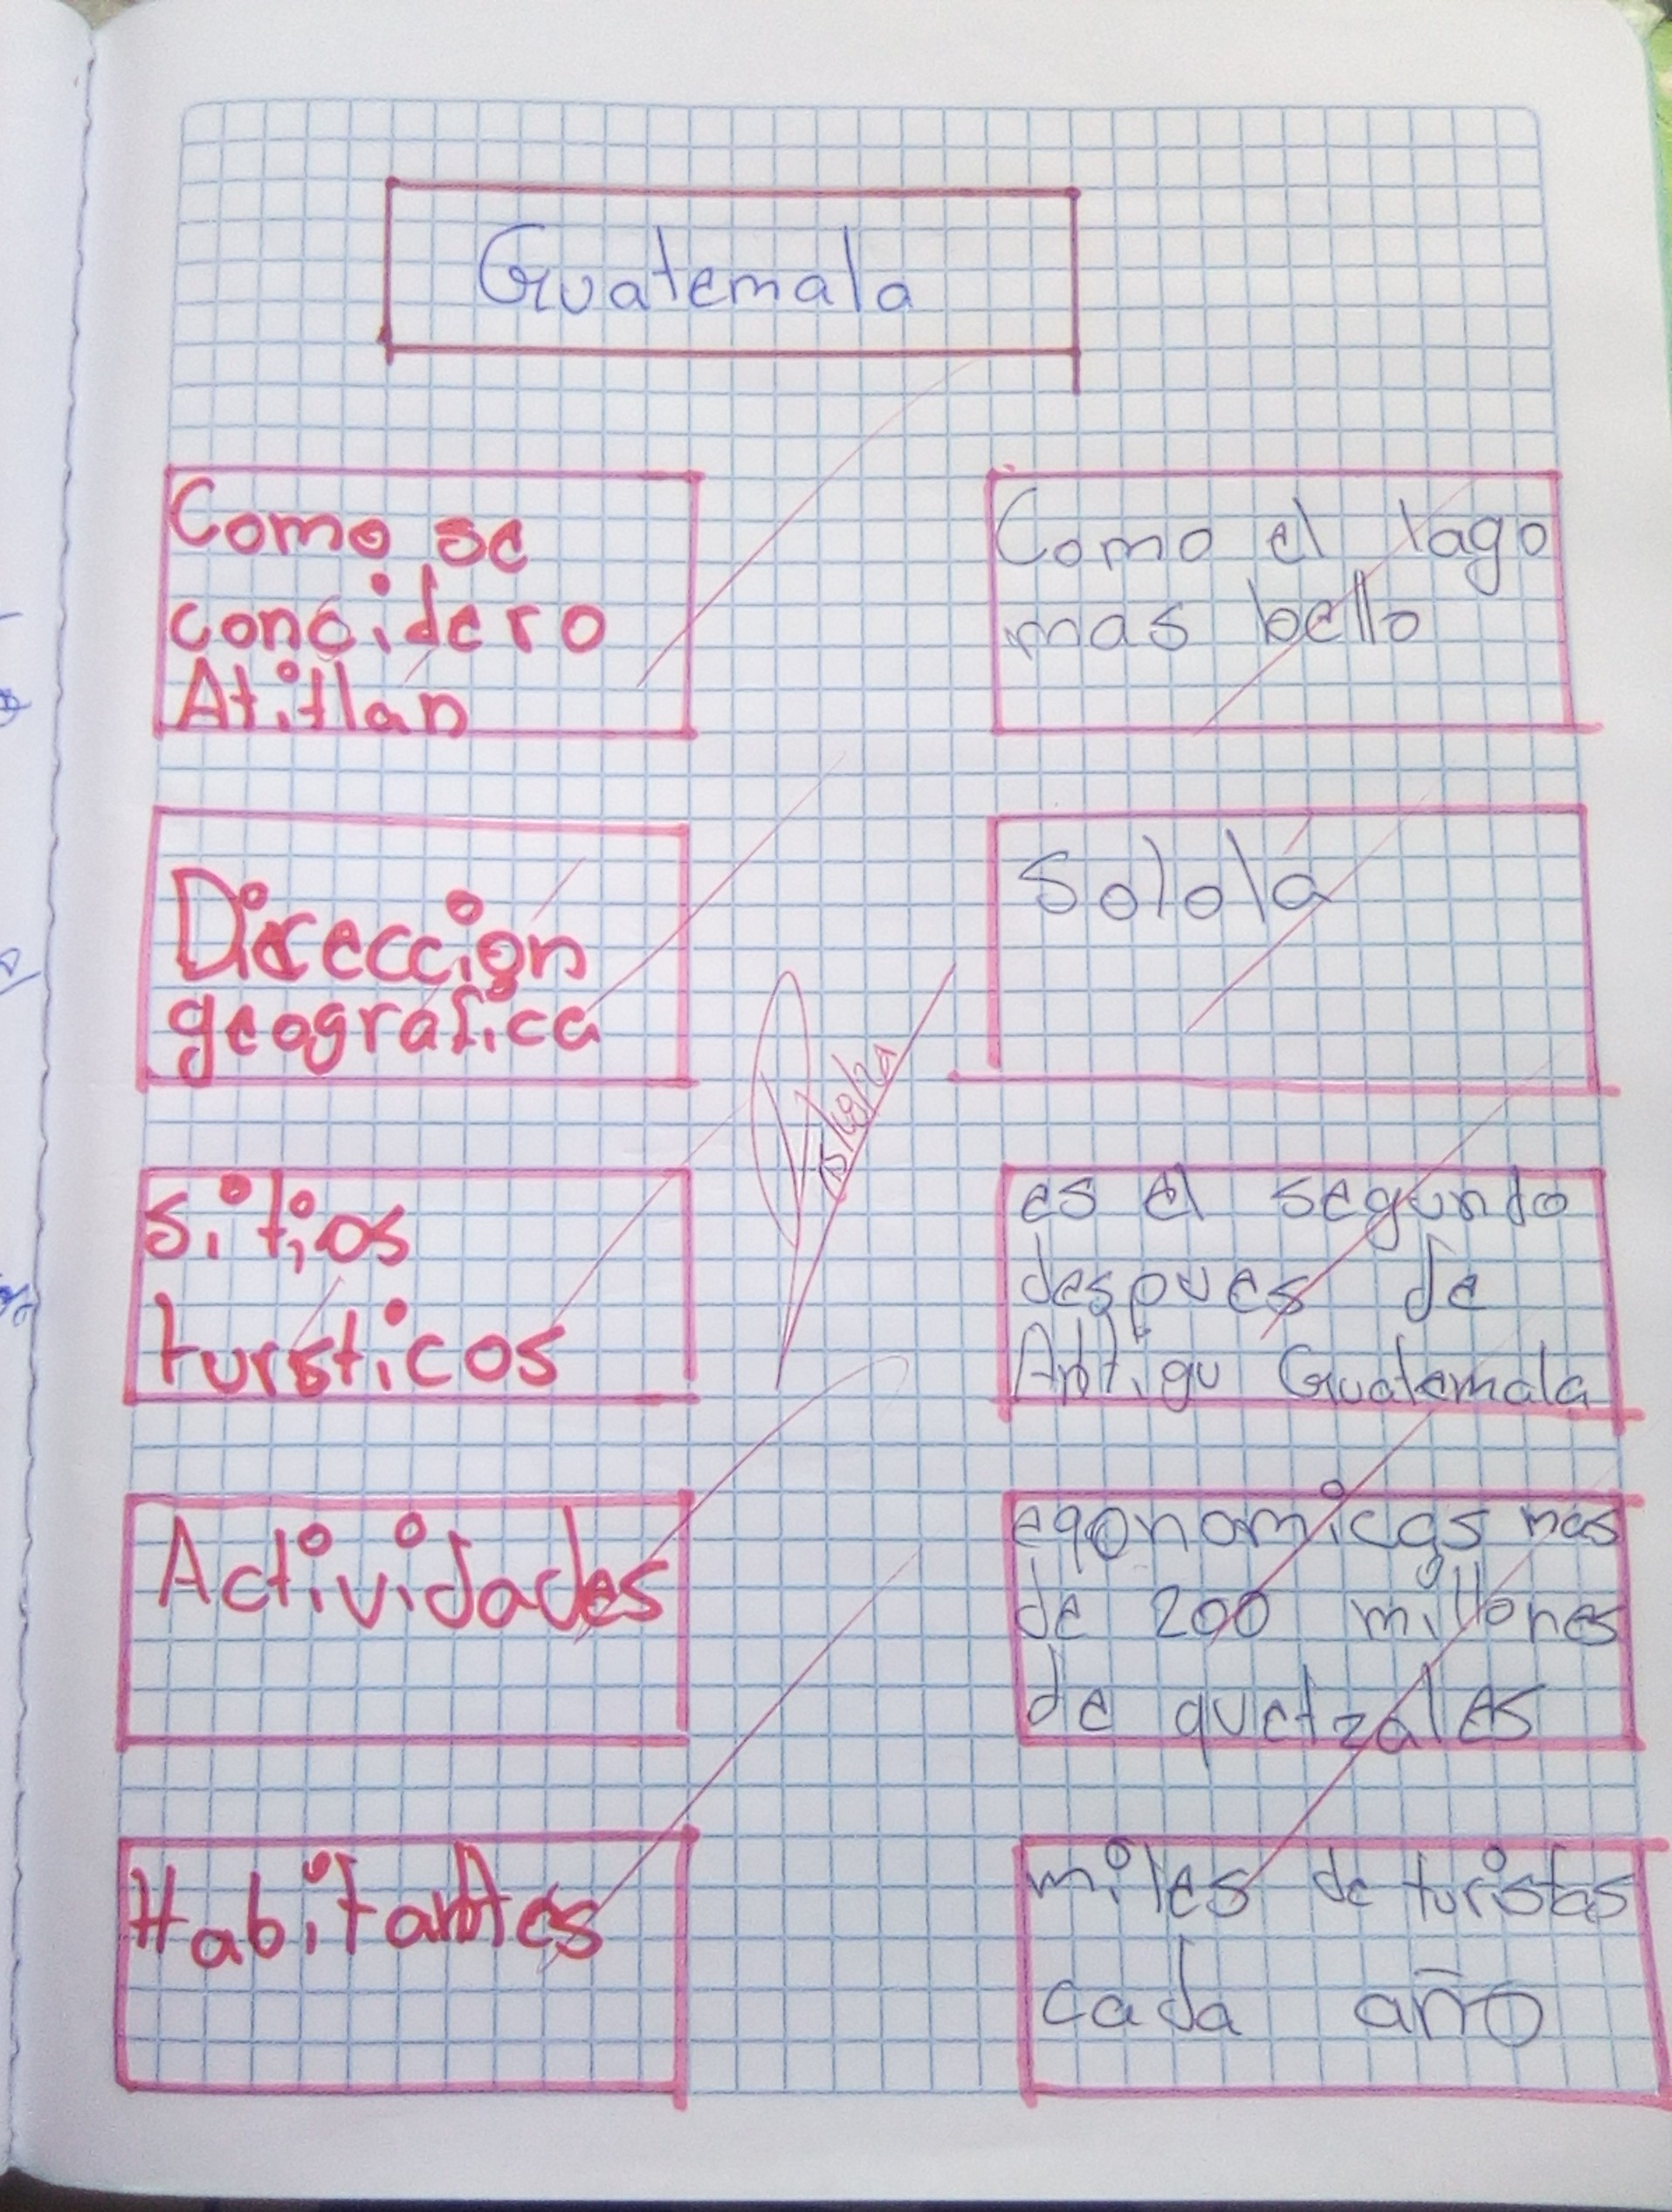 Guatemala
Como se
concidero
Atitlan
Como el lago
mas bello
Direccion
geografica
Sololá
sitios
tursticos
es el segundo
despues de
Antigu Guatemala
Actividades
eqonomicas mas
de 200 millones
de quetzales
Habitantes
miles de turistas
cada año